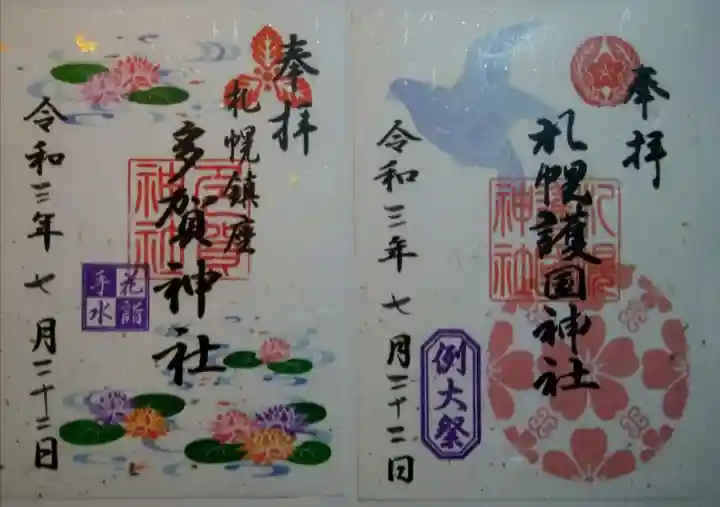 奉拝
札幌鎮座
多賀神社
令和三年七月二十二日
多賀神社
花詣
手水
奉拝
札幌護国神社
令和三年七月二十二日
例大祭